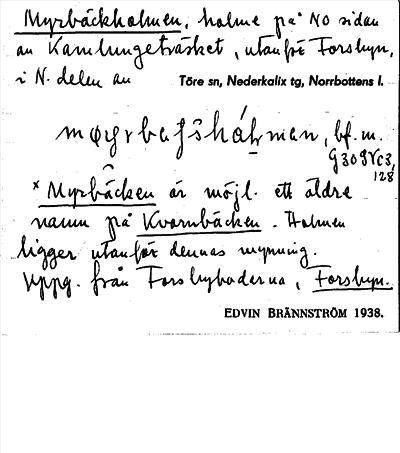 Myrbäckholmen, holme på NO sidan
av Kamlungeträsket, utanför Forsbyn,
i N. delen av Töre sn, Nederkalix tg, Norrbottens l.
bf. m.
128
× Myrbäcken är möjl. ett äldre
namn på Kvarnbäcken. Holmen
ligger utanför dennas mynning.
Uppg. från Forsbyboderna, Forsbyn.
EDVIN BRÄNNSTRÖM 1938.